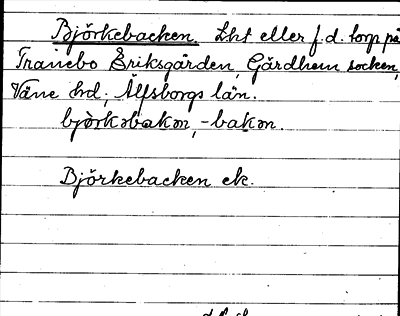 Björkebacken. Lht eller f.d. torp på
Tranebo Eriksgården, Gärdhem socken,
Väne hd; Älfsborgs län.
bjòrkəbakən, -bakən.
Björkebacken ek.